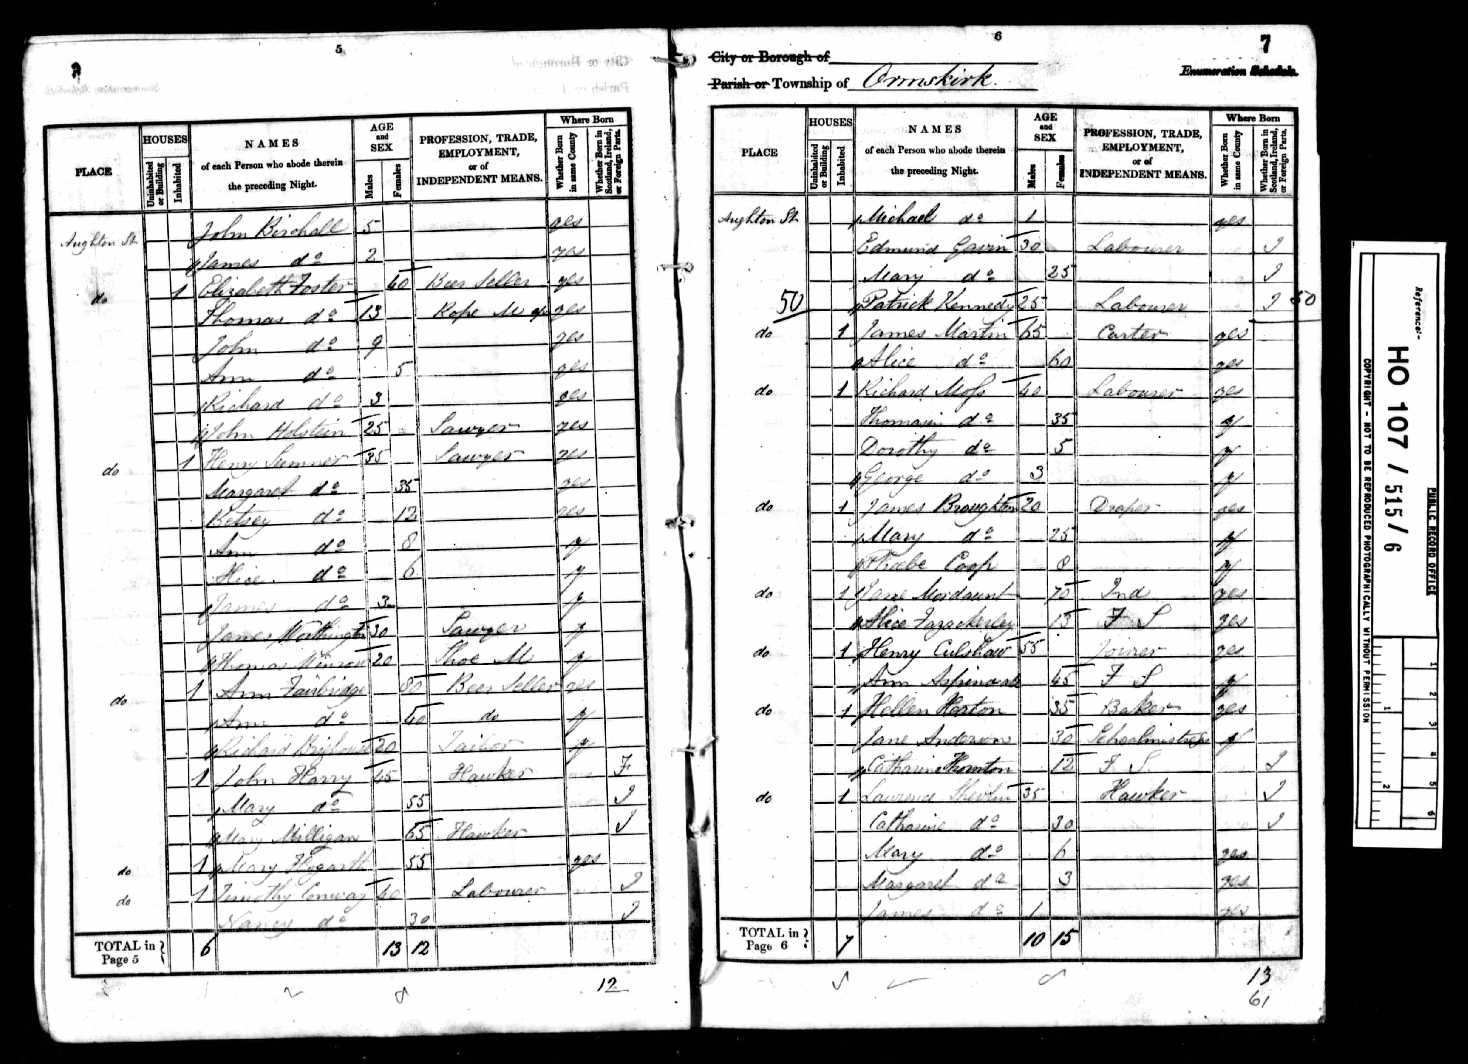 5
NAMES
HOUSES
AGE and SEX
Where Born
PLACE
Uninhabited or Building
Inhabited
of each Person who abode therein the preceding Night.
Males
Females
PROFESSION, TRADE, EMPLOYMENT, or of INDEPENDENT MEANS.
Whether Born in same County
Whether Born in Scotland, Ireland, or Foreign Parts.
Aughton St John Birchall 5 yes
James do 2 yes
do 1 Elizabeth Foster 40 Beer Seller yes
Thomas do 13 Rope M ap yes
John do 9 yes
Ann do 5 yes
Richard do 3 yes
John Holstein 25 Sawyer yes
do 1 Henry Sumner 35 Sawyer yes
Margaret do 35 yes
Betsey do 12 yes
Ann do 8 y
Alice do 6 y
James do 3 y
James Worthington 30 Sawyer y
Thomas 20 Shoe M y
do 1 Ann Fairbridge 80 Beer Seller yes
Ann do 40 do y
Richard 20 Tailor y
1 John Harry 45 Hawker
Mary do 55 I
Mary Milligan 65 Hawker I
do 1 Mary Hogarth 55 yes
do 1 Timothy Conway 40 Labourer I
Nancy do 30 I
TOTAL in Page 5 6 13 12
12
6
7
City or Borough of
Enumeration Schedule.
Parish or Township of Ormskirk.
PLACE
HOUSES
Uninhabited or Building
Inhabited
NAMES
of each Person who abode therein the preceding Night.
AGE and SEX
Males
Females
PROFESSION, TRADE, EMPLOYMENT, or of INDEPENDENT MEANS.
Where Born
Whether Born in same County
Whether Born in Scotland, Ireland, or Foreign Parts.
Aughton St Michael do 1 yes
Edmund Gavin 30 Labourer I
Mary do 25 I
50 Patrick Kennedy 25 Labourer I 50
do 1 James Martin 65 Carter yes
Alice do 60 yes
do 1 Richard Moss 40 Labourer yes
Thomasin do 35 y
Dorothy do 5 y
George do 3 y
do 1 James Broughton 20 Draper yes
Mary do 25 y
Phoebe Coop 8 y
do 1 Jane Mordaunt 70 Ind yes
Alice Fazackerley 15 F S yes
do 1 Henry Culshaw 55 Joiner yes
Ann Aspinwall 45 F S y
do 1 Hellen Horton 35 Baker yes
Jane Anderson 30 Schoolmistress y
Catharine Thornton 12 F S I
do 1 Lawrence 35 Hawker I
Catharine do 30 I
Mary do 6 yes
Margaret do 3 yes
James do 1 yes
TOTAL in Page 6 7 10 15
13
61
Reference:-
HO 107 / 515 / 6
PUBLIC RECORD OFFICE
COPYRIGHT - NOT TO BE REPRODUCED PHOTOGRAPHICALLY WITHOUT PERMISSION
1
2
3
4
5
6
1
2